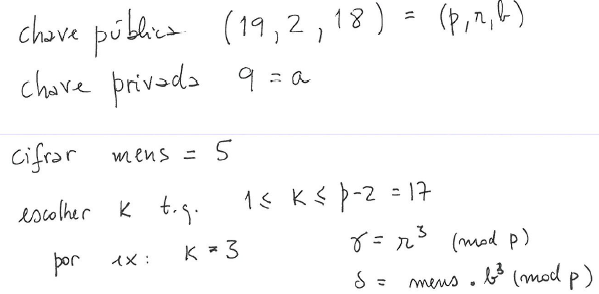 chave pública (19, 2, 18) = (p, r, b)
chave privada 9 = a
cifrar mens = 5
escolher K t.q. 1 ≤ K ≤ p-2 = 17
por ex: K = 3 γ = r³ (mod p)
δ = mens . b³ (mod p)